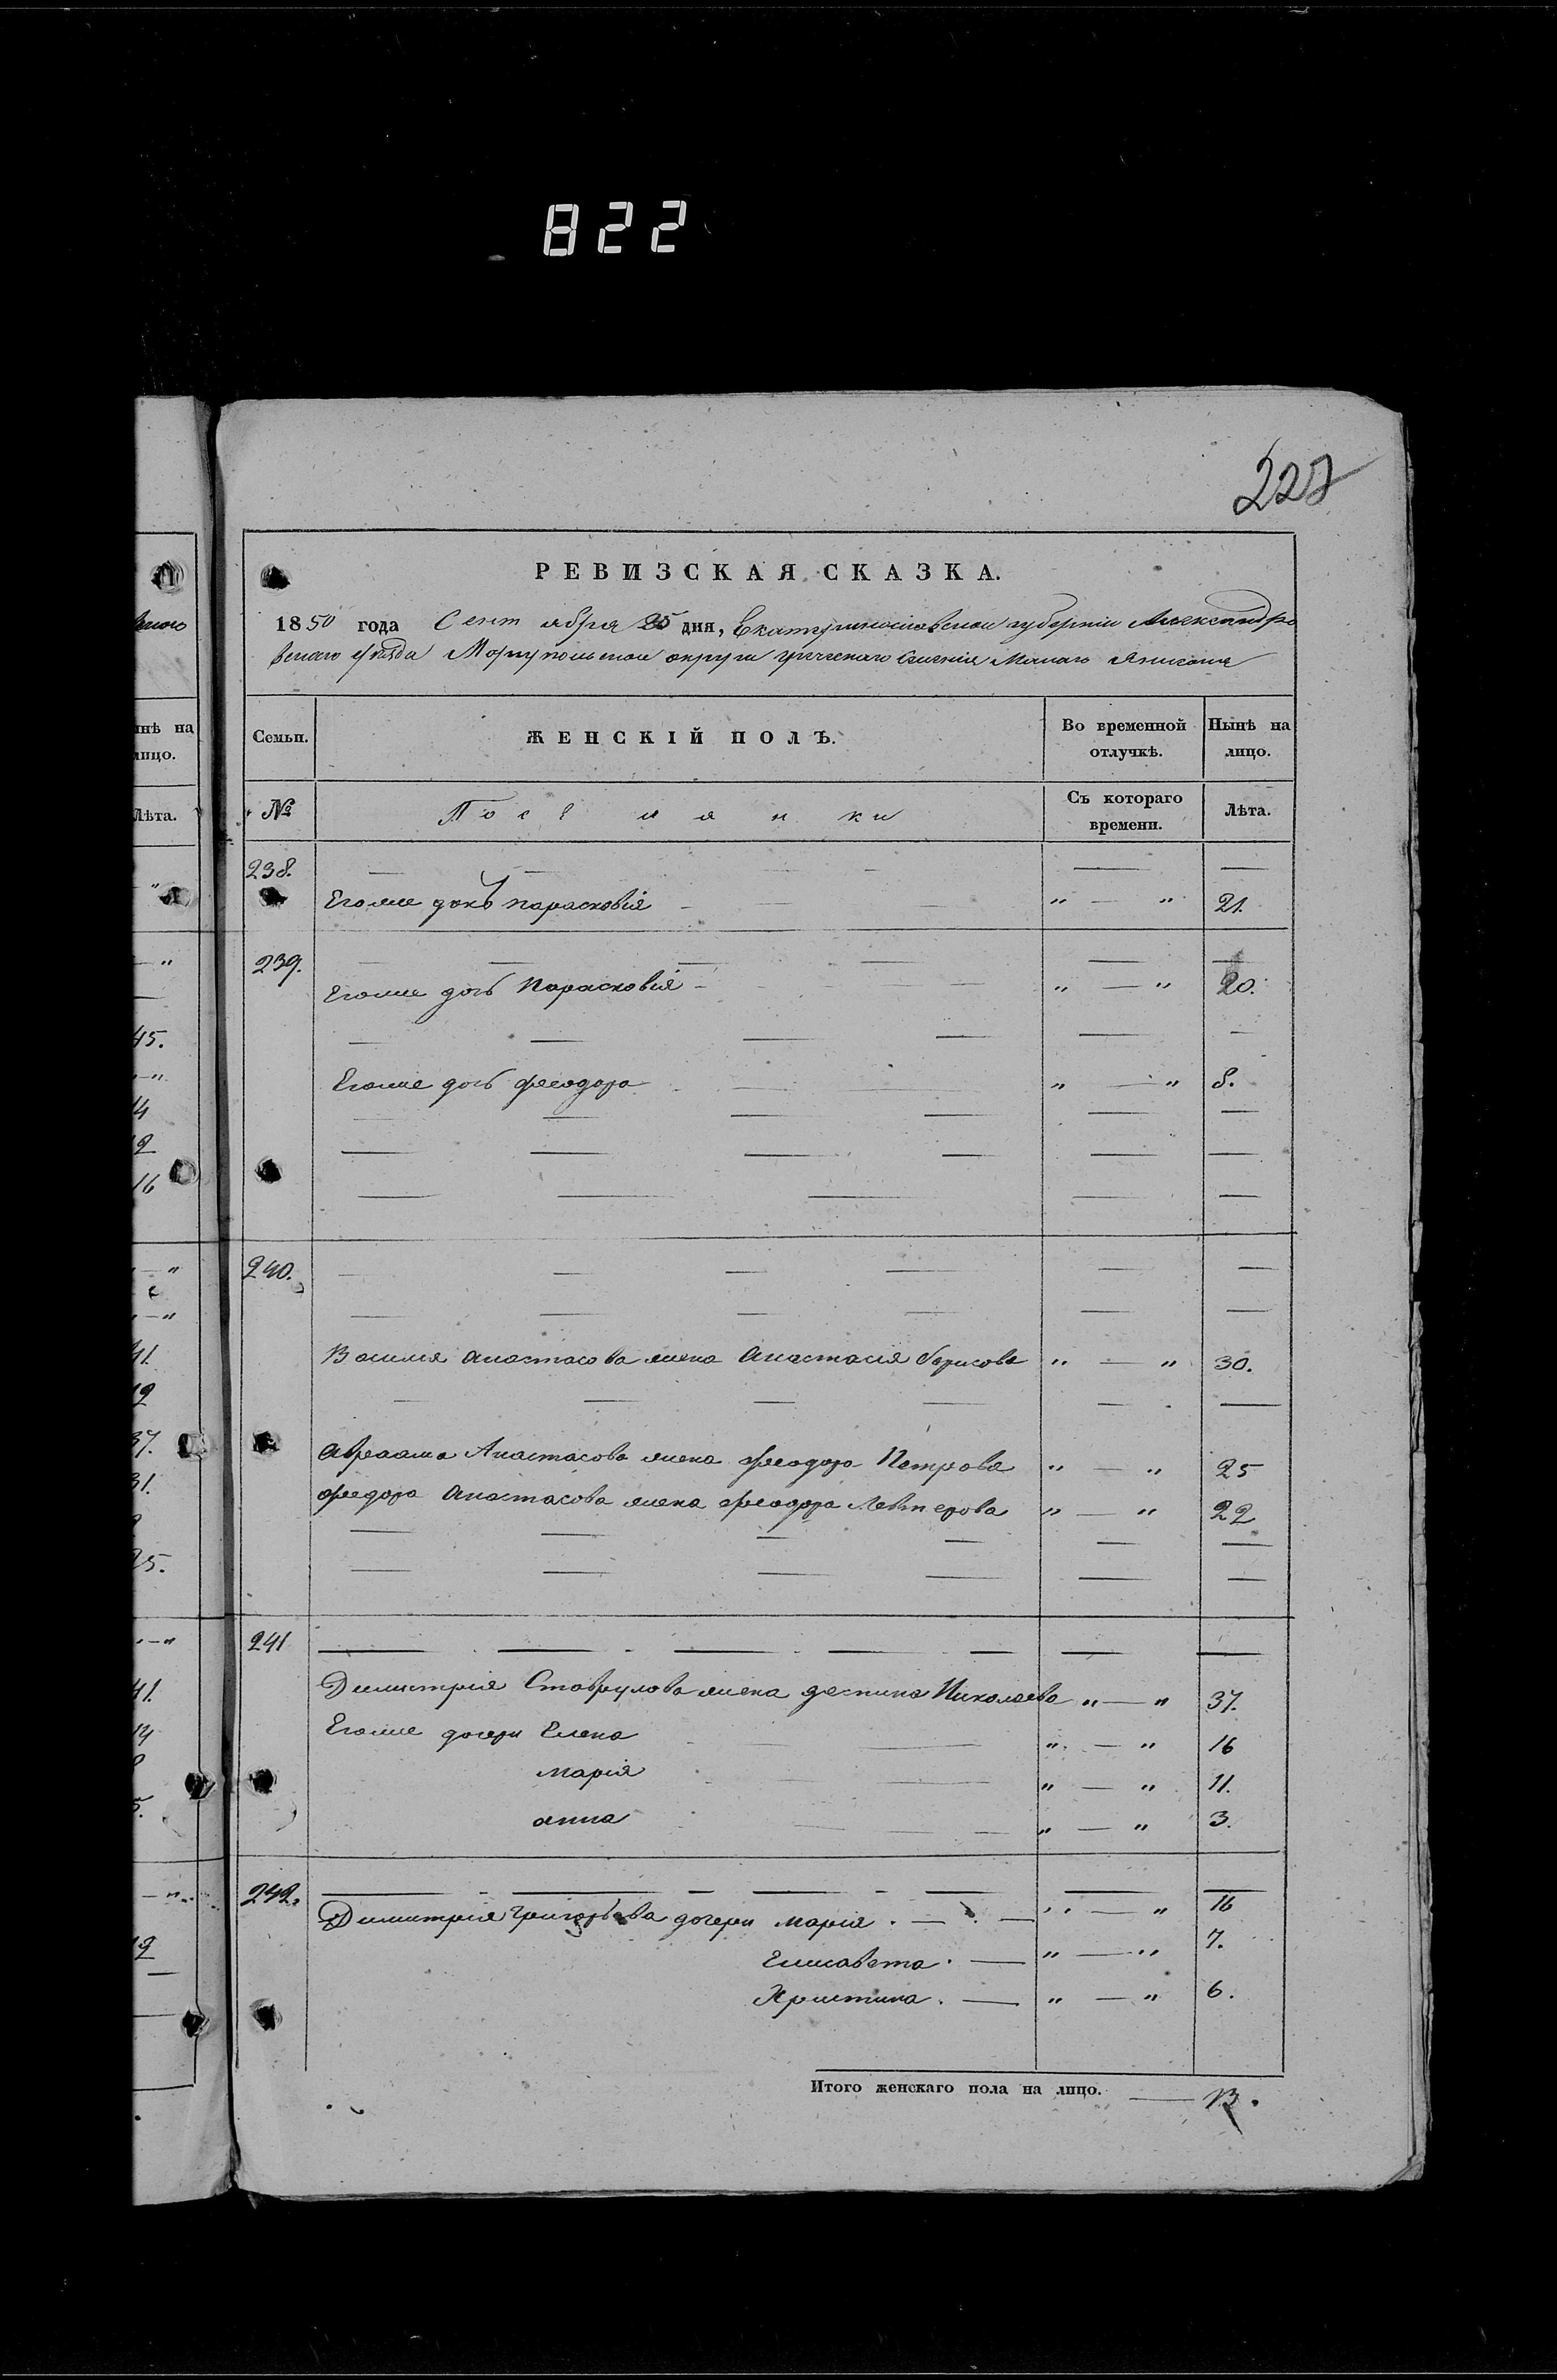 822
227
РЕВИЗСКАЯ СКАЗКА.
1850 года Сентября 25 дня, Екатеринославской губерніи Александро
вскаго уѣзда Маріупольскаго округа греческаго селенія Малаго Янисоля
Семьи. ЖЕНСКІЙ ПОЛЪ. Во временной отлучкѣ. Нынѣ на лицо.
№ Поселянки Съ котораго времени. Лѣта.
238.
Егоже дочь Парасковія " — " 21.
239.
Егоже дочь Парасковія " — " 20.
Егоже дочь Феодора " — " 8.
240.
Василія Анастасова жена Анастасія Борисова " — " 30.
Авраама Анастасова жена Феодора Петрова " — " 25
Федора Анастасова жена Феодора Левтерова " — " 22
241
Димитрія Ставрулова жена Деспина Николаева " — " 37.
Егоже дочери Елена " — " 16
Марія " — " 11.
Анна " — " 3.
242.
Димитрія Григорьева дочери Марія " — " 16
Елисавета " — " 7.
Христина " — " 6.
Итого женскаго пола на лицо. — 13.